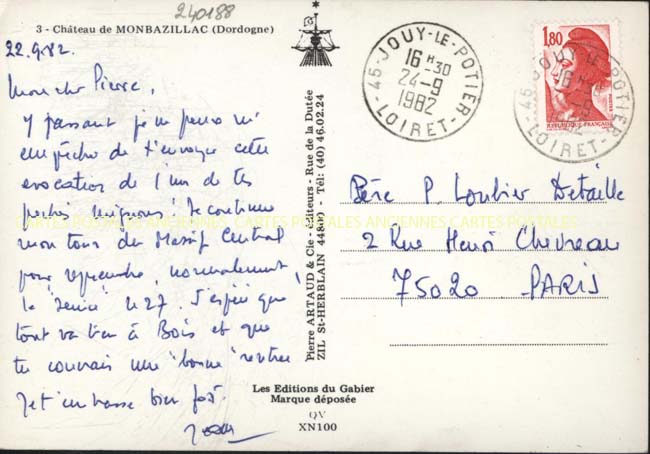 240188
3 - Château de MONBAZILLAC (Dordogne)
22.9.82.
Mon cher Pierre,
Y passant je ne peux m'
empêcher de t'envoyer cette
évocation de l'un de tes
péchés mignons! Je continue
mon tour du Massif Central
pour reprendre, normalement
le "service" le 27. J'espère que
tout va bien à Bois et que
tu connais une "bonne" rentrée
Je t'embrasse bien fort.
Pierre ARTAUD & Cie - éditeurs - Rue de la Dutée
ZIL St-HERBLAIN 44800 - Tél: (40) 46.02.24
Les Editions du Gabier
Marque déposée
QV
XN100
45 - JOUY-LE-POTIER
16 H 30
24-9
1982
LOIRET
1,80
REPUBLIQUE FRANÇAISE
45 - JOUY-LE-POTIER
16 H
LOIRET
Père P. Loubier Detaille
2 Rue Henri Chevreau
75020 PARIS
CARTES POSTALES ANCIENNES CARTES POSTALES ANCIENNES CARTES POSTALES